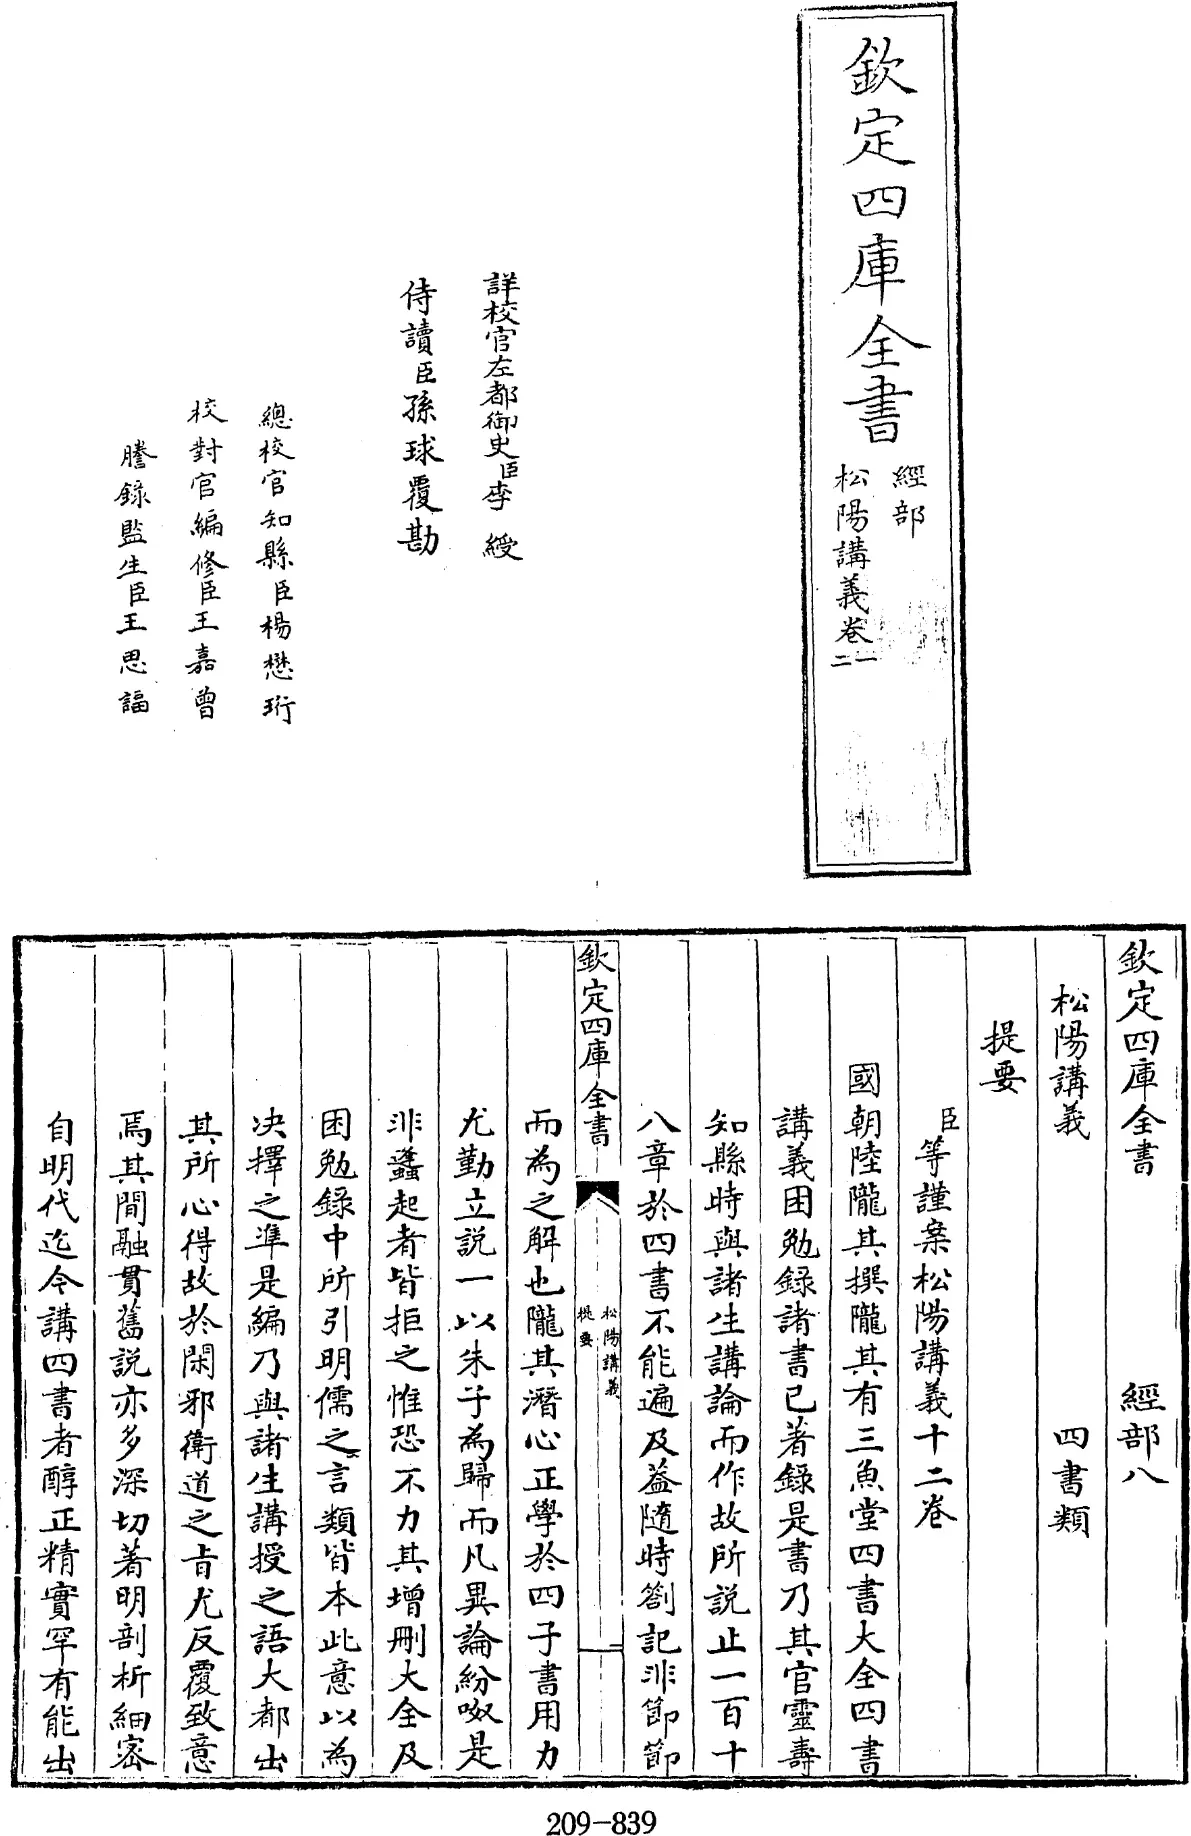 欽定四庫全書
經部
松陽講義卷一二
詳校官左都御史臣李綬
侍讀臣孫球覆勘
總校官知縣臣楊懋珩
校對官編修臣王嘉曾
謄錄監生臣王思諨
欽定四庫全書 經部八
松陽講義 四書類
提要
臣等謹案松陽講義十二卷
國朝陸隴其撰隴其有三魚堂四書大全四書
講義困勉錄諸書已著錄是書乃其官靈壽
知縣時與諸生講論而作故所説止一百十
八章於四書不能遍及葢隨時劄記非節節
欽定四庫全書
松陽講義
提要
一
而為之解也隴其潛心正學於四子書用力
尤勤立説一以朱子為歸而凡異論紛呶是
非蠭起者皆拒之惟恐不力其增刪大全及
困勉錄中所引明儒之言類皆本此意以為
决擇之準是編乃與諸生講授之語大都出
其所心得故於閑邪衛道之旨尤反覆致意
焉其間融貫舊説亦多深切著明剖析細密
自明代迄今講四書者醇正精實罕有能出
209-839